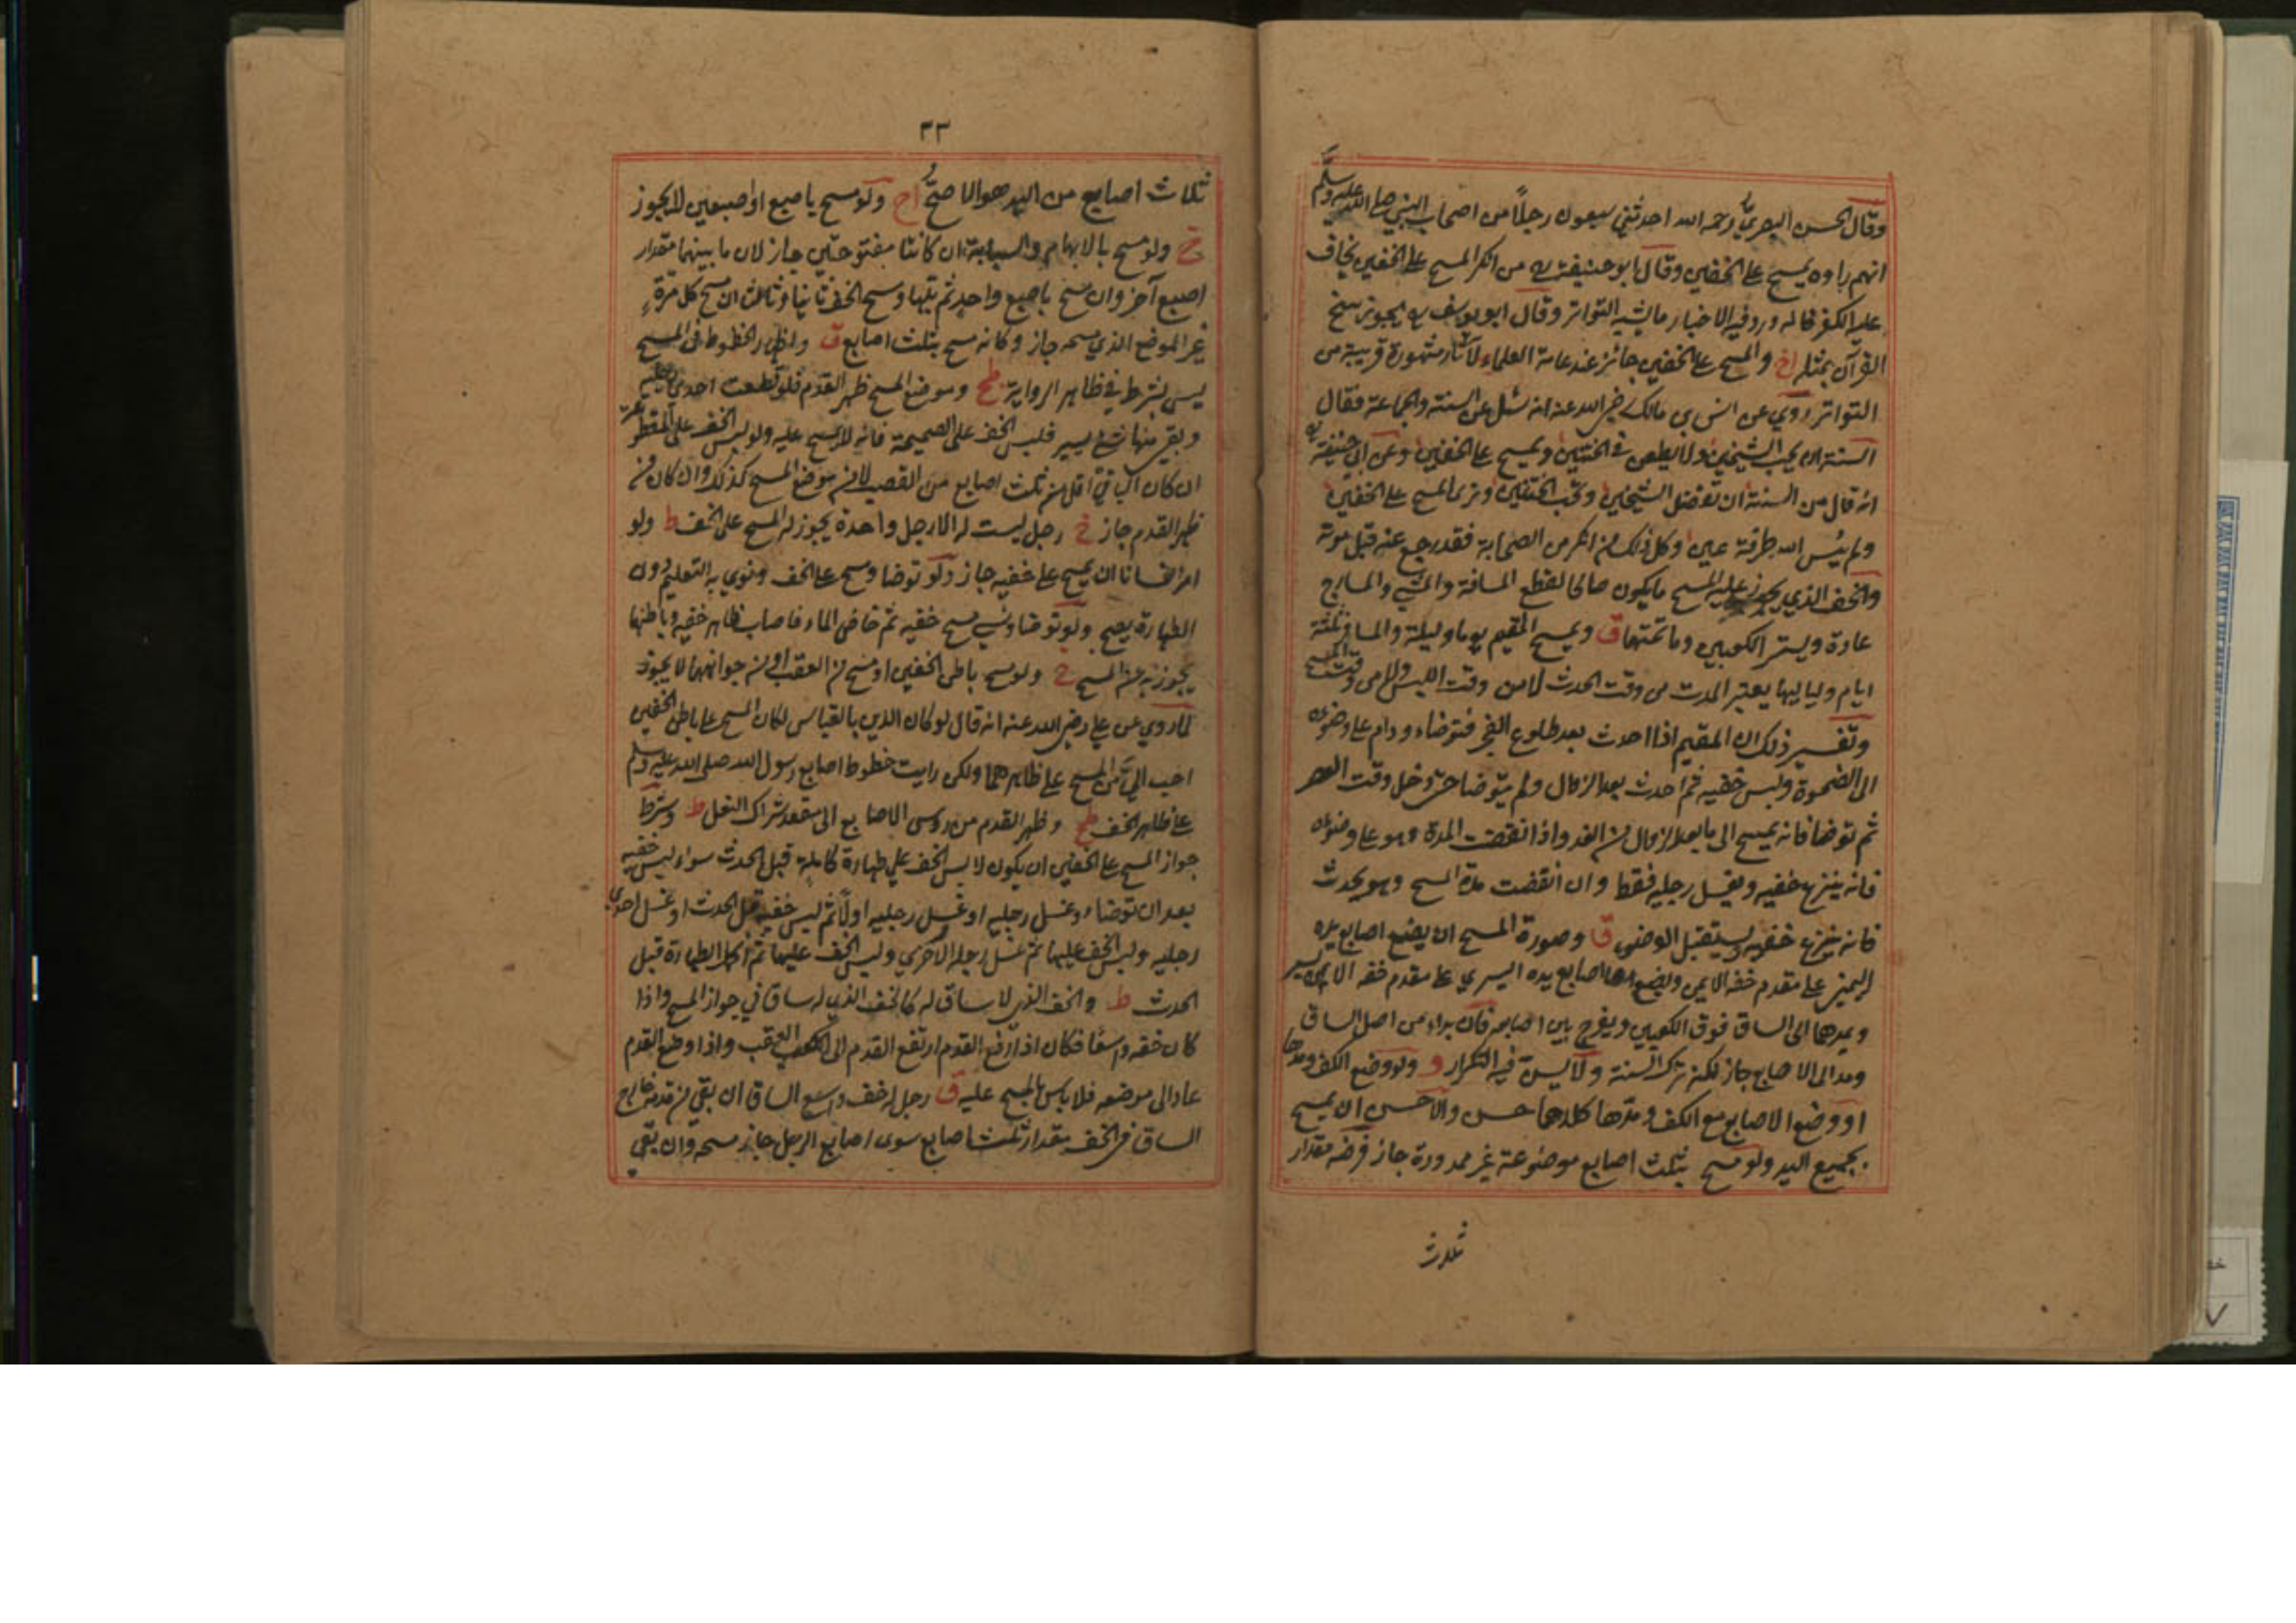 وقال الحسن البصري رحمه الله احدثني سبعون رجلاً من اصحاب النبي صلى الله عليه وسلم
انهم راوه يمسح على الخفين وقال ابو حنيفة ره من انكر المسح على الخفين يخاف
عليه الكفر فانه ورد فيه الاخبار ما يشبه التواتر وقال ابو يوسف ره يجوز نسخ
القرآن بمثله اخ والمسح على الخفين جائز عند عامة العلماء لآثار مشهورة قريبة من
التواتر روي عن انس بن مالك رضي الله عنه انه سئل عن السنة والجماعة فقال
السنة ان يحب الشيخين ولا يطعن في الختنين ويمسح على الخفين وعن ابي حنيفة ره
انه قال من السنة ان تفضل الشيخين وتحب الختنين وترى المسح على الخفين
ولم يئس الله طرفة عين وكل ذلك من انكر من الصحابة فقد رجع عنه قبل موته
والخف الذي يجوز عليه المسح ما يكون صالحا لقطع المسافة والمشي
عادة ويستر الكعبين وما تحتها ق ويمسح المقيم يوما وليلة والمسافر ثلثة
ايام ولياليها يعتبر المدت من وقت الحدث لا من وقت اللبس ولا من وقت المسح
وتفسير ذلك ان المقيم اذا احدث بعد طلوع الفجر فتوضاء ودام على وضوئه
الى الضحوة ولبس خفيه ثم احدث بعد الزوال ولم يتوضا حتى دخل وقت العصر
ثم توضا فانه يمسح الى ما بعد الزوال من الغد واذا انقضت المدة وهو على وضوئه
فانه ينزع خفيه ويغسل رجليه فقط وان انقضت مدة المسح وهو يحدث
فانه ينزع خفيه ويستقبل الوضوء ق وصورة المسح ان يضع اصابع يده
اليمنى على مقدم خفه الايمن ويضع اصابع يده اليسرى على مقدم خفه الايسر
ويمدهما الى الساق فوق الكعبين ويفرج بين اصابعه فان بداء من اصل الساق
ومد الى الاصابع جاز لكنه ترك السنة ولا يسن فيه التكرار و ولو وضع الكف ومدها
او وضع الاصابع مع الكف ومدها كلاهما حسن والاحسن ان يمسح
بجميع اليد ولو مسح بثلث اصابع موضوعة غير ممدودة جاز فرضه مقدار
ثلاث
٣٣
ثلاث اصابع من اليد هو الاصح اخ ولو مسح باصبع او اصبعين لا يجوز
خ ولو مسح بالابهام والسبابة ان كانتا مفتوحتين جاز لان ما بينهما مقدار
اصبع آخر وان مسح باصبع واحد ثم بلها ومسح الخف ثانيا وثالثا ان مسح كل مرة
غير الموضع الذي مسحه جاز وكانه مسح بثلث اصابع ق واظهار الخطوط في المسح
ليس بشرط في ظاهر الرواية وموضع المسح ظهر القدم فلو قطعت احدى رجليه
وبقي منها شئ يسير فلبس الخف على الصحيحة فانه لا يمسح عليه ولو لبس الخف على المقطوعة
ان كان الباقي اقل من ثلث اصابع من القصب لانه موضع المسح كذلك وان كان من
ظهر القدم جاز خ رجل ليست له الا رجل واحدة يجوز له المسح على الخف ط ولو
امر انسانا ان يمسح على خفيه جاز ولو توضا ومسح على الخف ونوي به التعليم دون
الطهارة يصح ولو توضا ونسي مسح خفيه ثم خاض الماء فاصاب ظاهر خفيه وباطنها
يجوزيه عن المسح خ ولو مسح باطن الخفين او مسح من العقب او من جوانبهما لا يجوز
لما روي عن علي رضي الله عنه انه قال لو كان الدين بالقياس لكان المسح على باطن الخفين
احب الي من المسح على ظاهرهما ولكن رايت خطوط اصابع رسول الله صلى الله عليه وسلم
على ظاهر الخف وظهر القدم من رؤس الاصابع الى مقعد شراك النعل ط وشرط
جواز المسح على الخفين ان يكون لابس الخف على طهارة كاملة قبل الحدث سواء لبس خفيه
بعد ان توضاء وغسل رجليه او غسل رجليه اولاً ثم لبس خفيه قبل الحدث او غسل احدى
رجليه ولبس الخف عليها ثم غسل رجله الاخرى ولبس الخف عليها ثم اكمل الطهارة قبل
الحدث ط والخف الذي لا ساق له كالخف الذي له ساق في جواز المسح واذا
كان خفه واسعا فكان اذا رفع القدم ارتفع القدم الى العقب واذا وضع القدم
عاد الى موضعه فلا باس بالمسح عليه ق رجل له خف واسع الساق ان بقي من قدمه خارج
الساق في الخف مقدار ثلث اصابع سوى اصابع الرجل جاز مسحه وان بقي